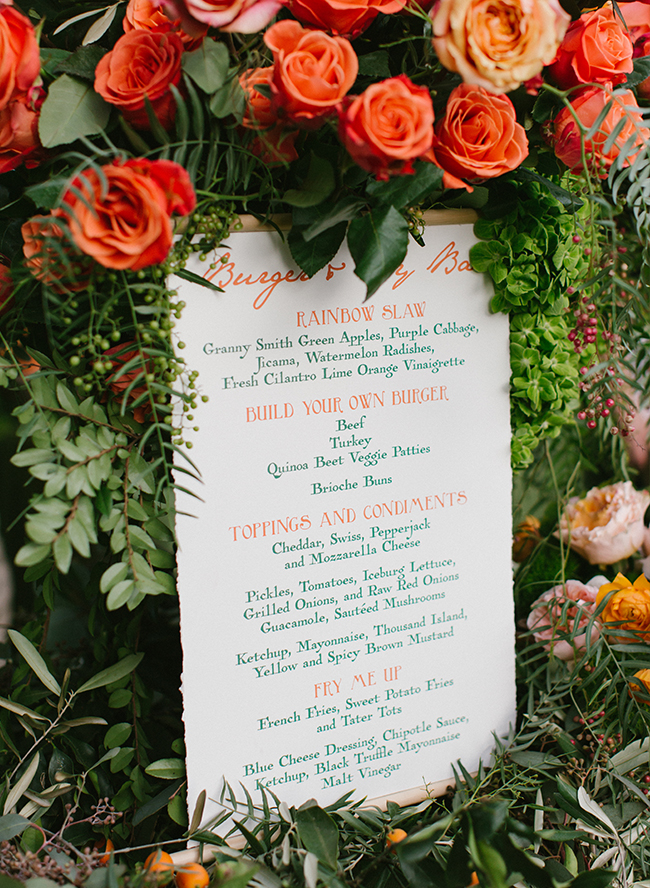 Burger & y Ba
RAINBOW SLAW
Granny Smith Green Apples, Purple Cabbage,
Jicama, Watermelon Radishes,
Fresh Cilantro Lime Orange Vinaigrette
BUILD YOUR OWN BURGER
Beef
Turkey
Quinoa Beet Veggie Patties
Brioche Buns
TOPPINGS AND CONDIMENTS
Cheddar, Swiss, Pepperjack
and Mozzarella Cheese
Pickles, Tomatoes, Iceburg Lettuce,
Grilled Onions, and Raw Red Onions
Guacamole, Sautéed Mushrooms
Ketchup, Mayonnaise, Thousand Island,
Yellow and Spicy Brown Mustard
FRY ME UP
French Fries, Sweet Potato Fries
and Tater Tots
Blue Cheese Dressing, Chipotle Sauce,
Ketchup, Black Truffle Mayonnaise
Malt Vinegar